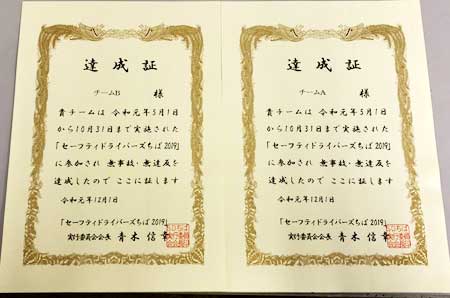 達成証
チームB 様
貴チームは 令和元年5月1日
から10月31日まで実施された
「セーフティドライバーズちば2019」
に参加され 無事故・無違反を
達成したので ここに証します
令和元年12月1日
「セーフティドライバーズちば2019」
実行委員会会長 青木 信幸
達成証
チームA 様
貴チームは 令和元年5月1日
から10月31日まで実施された
「セーフティドライバーズちば2019」
に参加され 無事故・無違反を
達成したので ここに証します
令和元年12月1日
「セーフティドライバーズちば2019」
実行委員会会長 青木 信幸